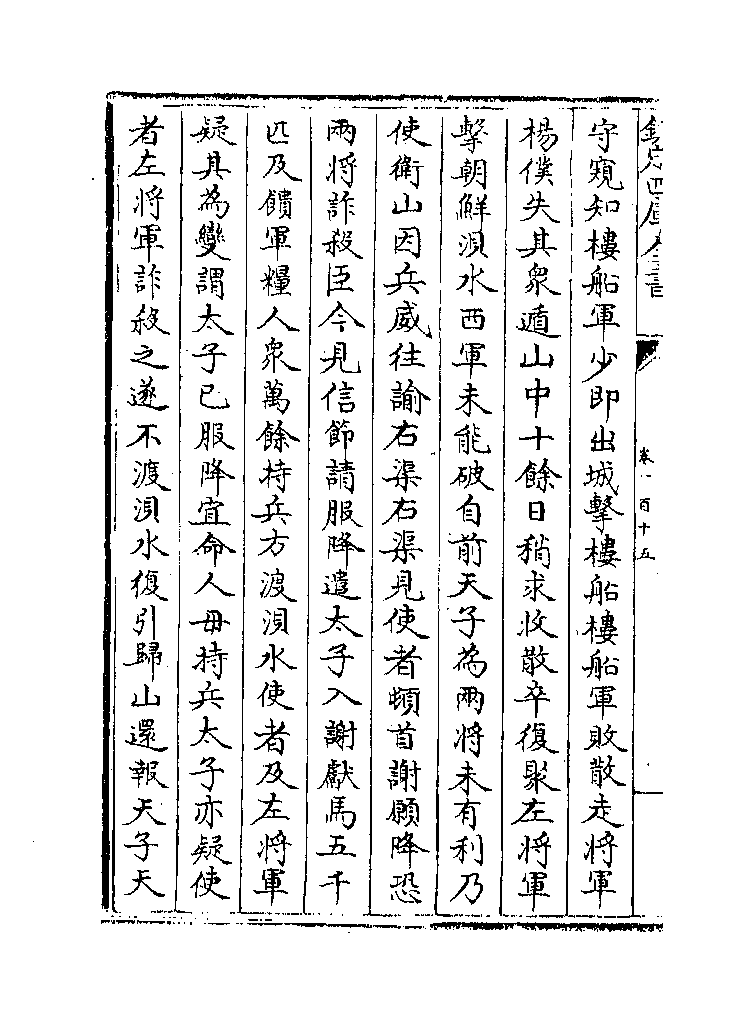 欽定四庫全書
卷一百十五
守窺知樓船軍少即出城擊樓船樓船軍敗散走將軍
楊僕失其衆遁山中十餘日稍求收散卒復聚左將軍
擊朝鮮浿水西軍未能破自前天子為兩將未有利乃
使衛山因兵威往諭右渠右渠見使者頓首謝願降恐
兩將詐殺臣今見信節請服降遣太子入謝獻馬五千
匹及饋軍糧人衆萬餘持兵方渡浿水使者及左將軍
疑其為變謂太子已服降宜命人毋持兵太子亦疑使
者左將軍詐殺之遂不渡浿水復引歸山還報天子天